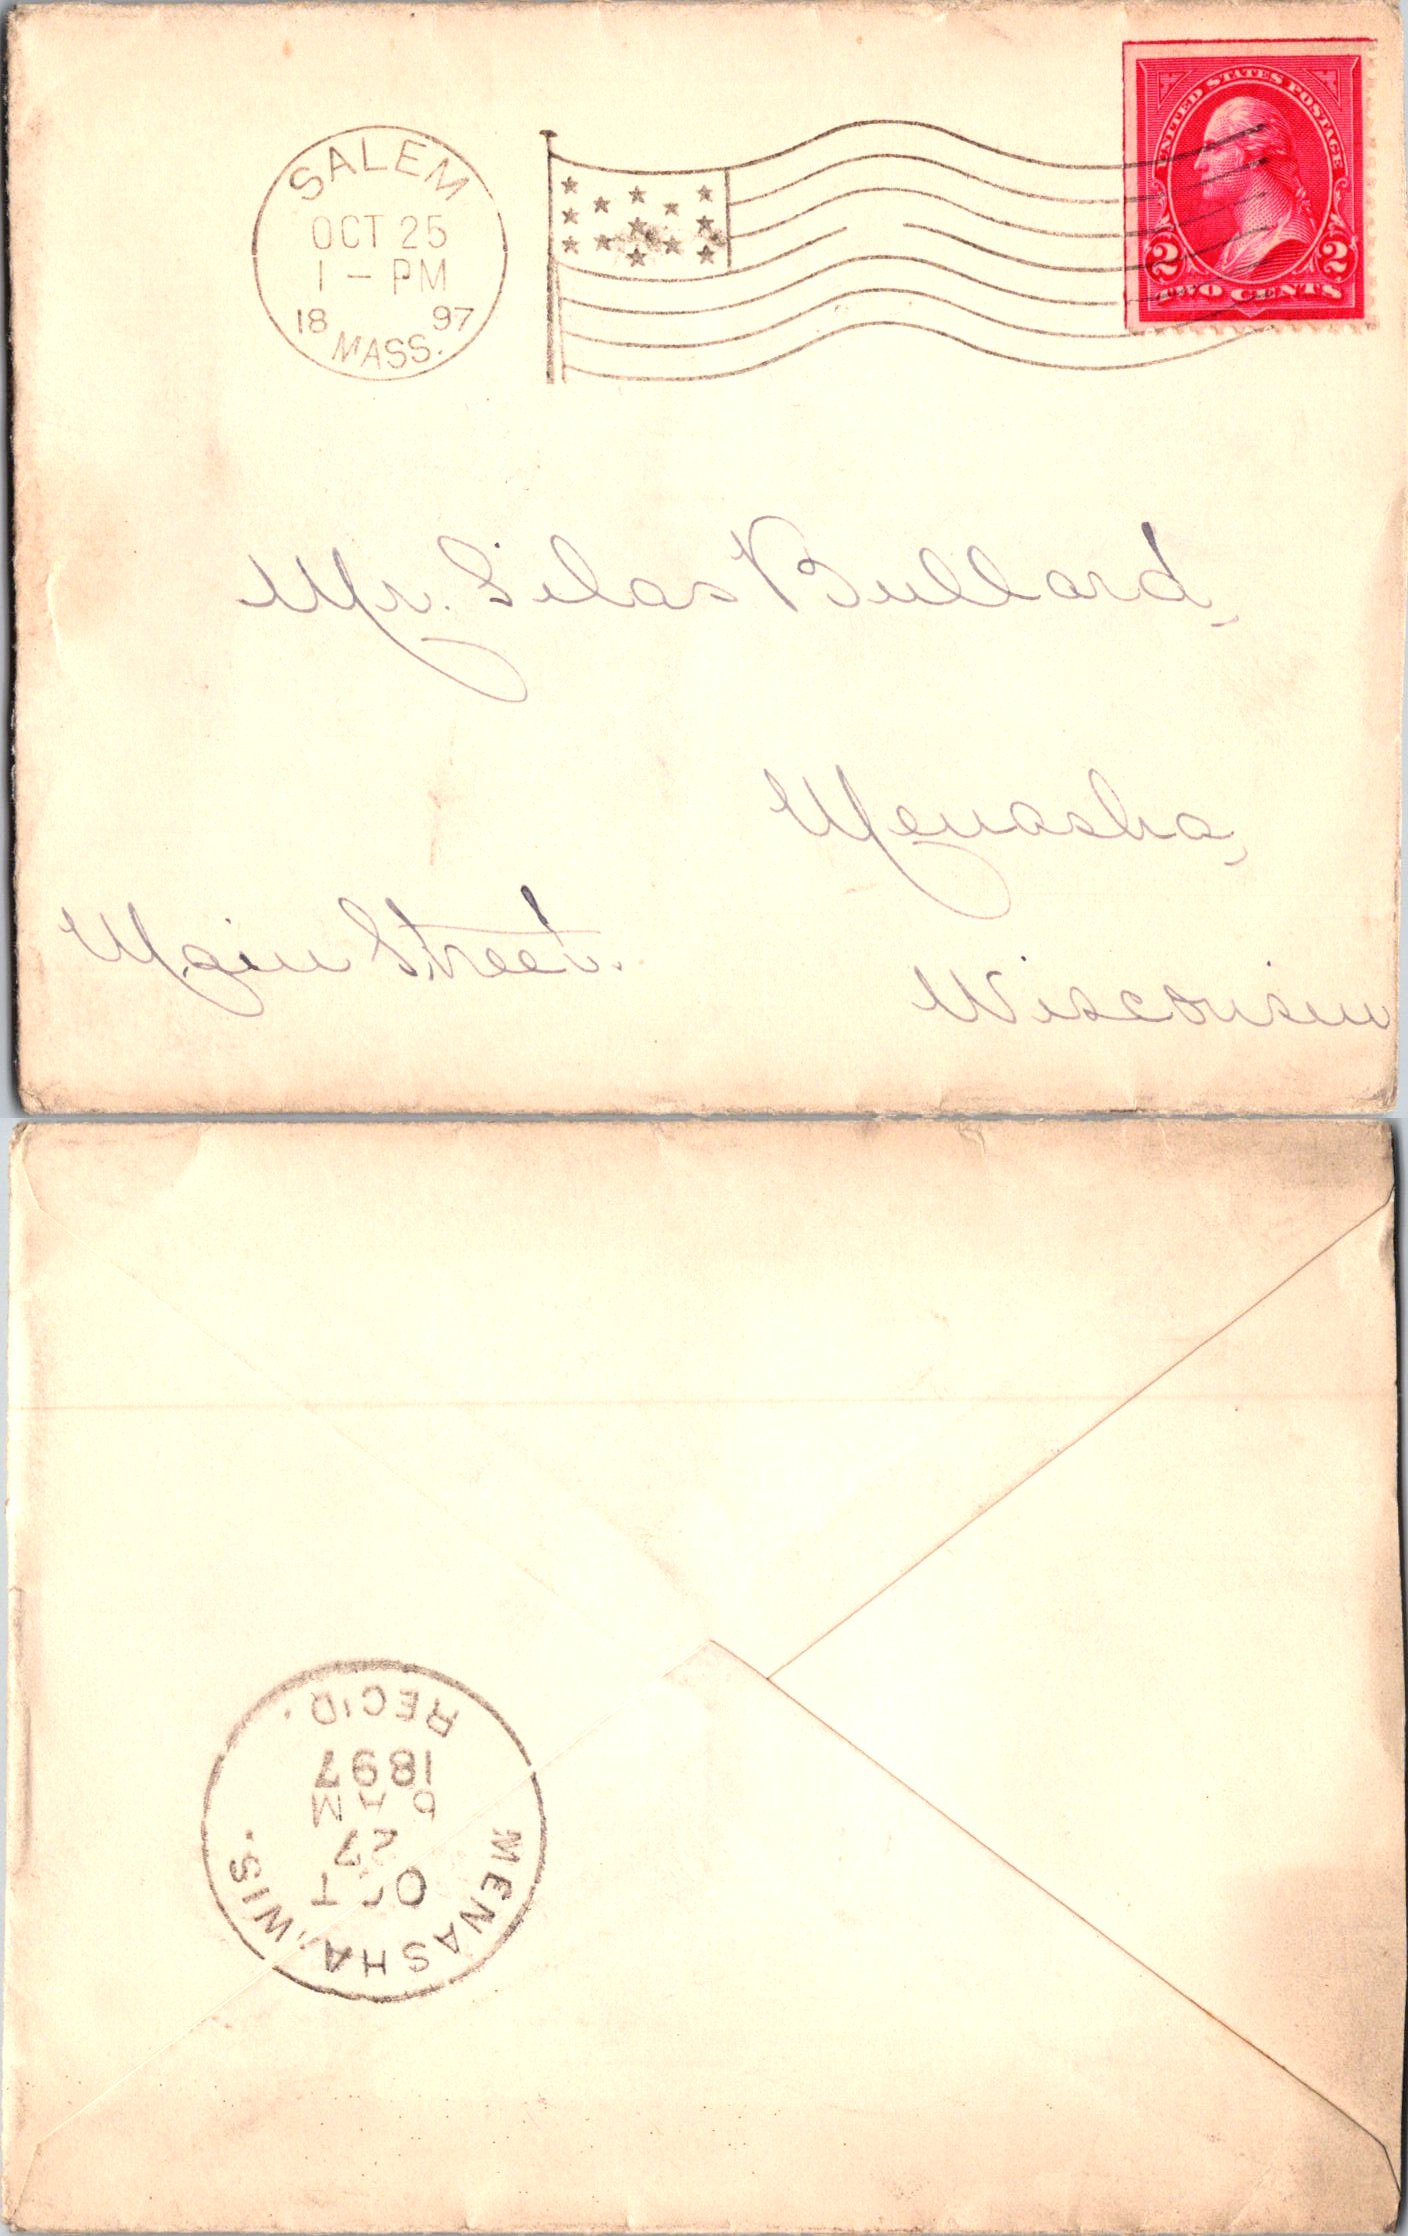 SALEM
OCT 25
1 - PM
18 97
MASS.
UNITED STATES POSTAGE
2 2
TWO CENTS
Mr. Silas Bullard,
Menasha,
Main Street.
Wisconsin
REC'D.
1897
6 AM
27
OCT
MENASHA, WIS.